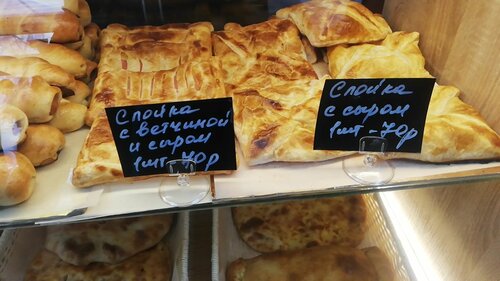 Слойка
с ветчиной
и сыром
1шт-70р
Слойка
с сыром
1шт-70р